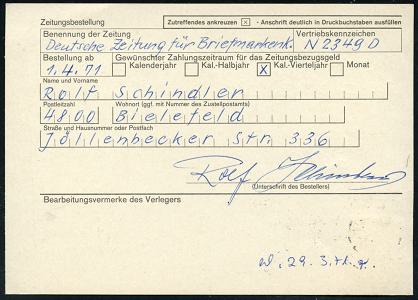 Zeitungsbestellung Zutreffendes ankreuzen [x] - Anschrift deutlich in Druckbuchstaben ausfüllen
Benennung der Zeitung Vertriebskennzeichen
Deutsche Zeitung für Briefmarkenk. N 2349 D
Bestellung ab Gewünschter Zahlungszeitraum für das Zeitungsbezugsgeld
1.4.71 Kalenderjahr Kal.-Halbjahr X Kal.-Vierteljahr Monat
Name und Vorname
Rolf Schindler
Postleitzahl Wohnort (ggf. mit Nummer des Zustellpostamts)
4800 Bielefeld
Straße und Hausnummer oder Postfach
Jöllenbecker Str 336
Rolf Schindler
(Unterschrift des Bestellers)
Bearbeitungsvermerke des Verlegers
29. 3. 71